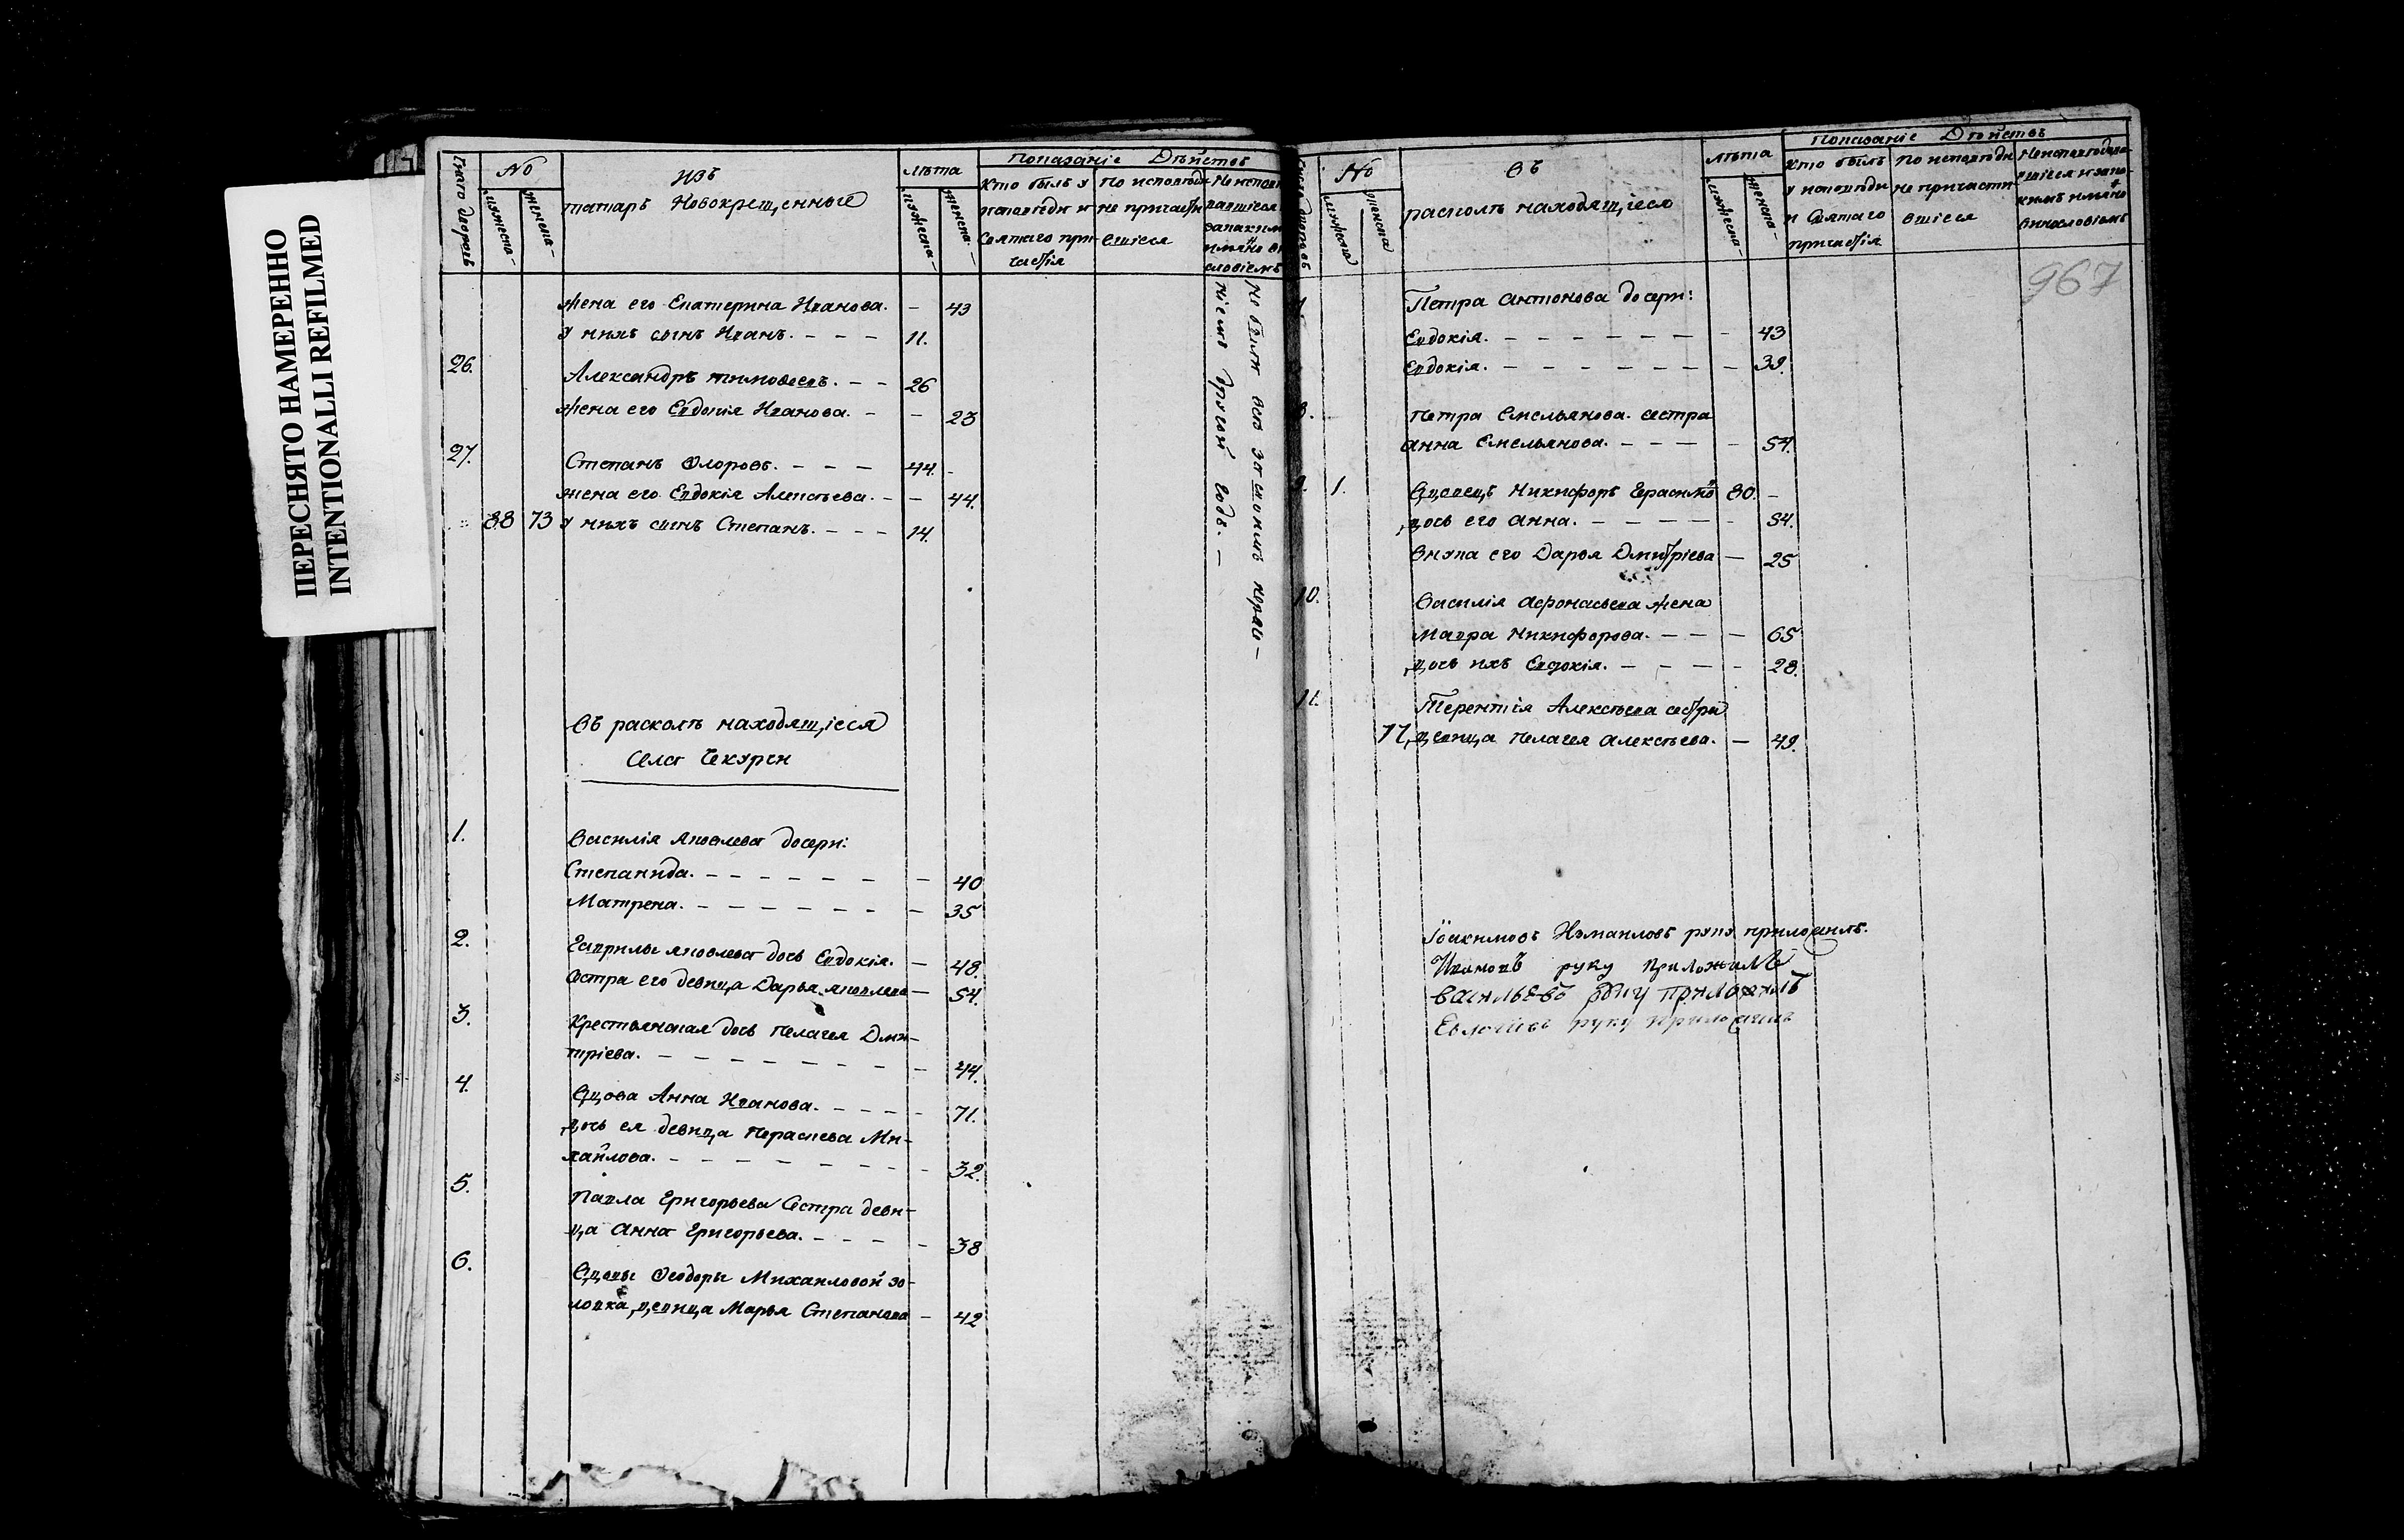 ПЕРЕСНЯТО НАМЕРЕННО
INTENTIONALLI REFILMED
Число дворовъ
№
мужеска
женска
изъ
татаръ Новокрещенные
лѣта
мужеска
женска
Показаніе Дѣйствъ
Кто былъ у исповѣди и Святаго причастія
По исповѣди не причастившіеся
Неисповѣдавшіеся
Жена его Екатерина Иванова. – 43
У нихъ сынъ Иванъ. – – – 11.
26. Александръ тимоѳеевъ. – – 26
Жена его Евдокія Иванова. – – 23
27. Степанъ Ѳлоровъ. – – – 44. –
Жена его Евдокія Алексѣева. – – 44.
88 73 У нихъ сынъ Степанъ. – – – 14.
Не были всѣ за
другой годъ. –
Въ расколѣ находящіеся
Села Чекурси
1. Василія Яковлева дочери:
Степанида. – – – – – – – 40
Матрена. – – – – – – – 35
2. Гаврилы яковлева дочь Евдокія. – 48.
Сестра его девица Дарья яковлева – 54.
3. Крестьянская дочь Пелагея Дми-
тріева. – – – – – – – 44.
4. Вдова Анна Иванова. – – – – 71.
дочь ея девица Параскева Ми-
хайлова. – – – – – – – – 32.
5. Павла Григорьева Сестра деви-
ца Анна Григорьева. – – – – 38
6. Вдовы Ѳеодоры Михайловой зо-
ловка, девица Марья Степанова – 42
№
мужеска
женска
Въ
расколѣ находящіеся
лѣта
мужеска
женска
Показаніе Дѣйствъ
Кто былъ у исповѣди и Святаго причастія
По исповѣди не причастившіеся
967
Петра Антонова дочери:
Евдокія. – – – – – – – – 43
Евдокія. – – – – – – – 39.
8. Петра Емельянова сестра
Анна Емельянова. – – – – 54.
9. 1. Вдовецъ Никифоръ Герасимо 80. –
дочь его Анна. – – – – – 54.
Внука его Дарья Дмитріева – 25
10. Василія Афонасьева жена
Мавра Никифорова. – – – 65
дочь ихъ Евдокія. – – – – 28.
11. Терентія Алексѣева сестра
17, девица Пелагея Алексѣева. – 49.
руку приложилъ.
Ивановъ руку приложилъ
Васильевъ руку приложилъ
руку приложилъ